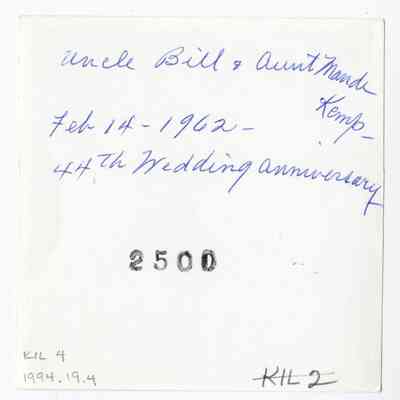 Uncle Bill & Aunt Maude
Kemp -
Feb 14 - 1962 -
44th Wedding anniversary
2500
KIL 4
1994.19.4
KIL 2